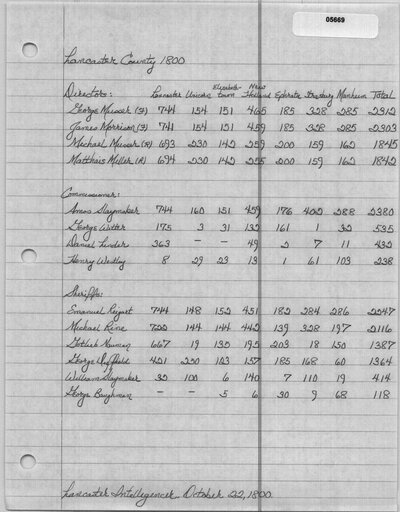 05669
Lancaster County 1800
Directors: Lancaster Unicorn Elizabeth-town New Holland Ephrata Strasburg Manheim Total
George Musser (F) 744 154 151 465 185 328 285 2312
James Morrison (F) 741 154 151 459 185 328 285 2303
Michael Musser (R) 693 230 142 259 200 159 162 1845
Matthais Miller (R) 694 230 142 255 200 159 162 1842
Commissioner:
Amos Slaymaker 744 160 151 459 176 402 288 2380
George Witter 175 3 31 132 161 1 32 535
Daniel Linder 363 – – 49 2 7 11 432
Henry 8 29 23 13 1 61 103 238
Sheriffs:
Emanuel Reigart 744 148 152 451 182 284 286 2247
Michael Rine 722 144 144 442 139 328 197 2116
Gotlieb Nauman 667 19 135 195 203 18 150 1387
George Duffield 421 220 153 157 185 168 60 1364
William Slaymaker 32 100 6 140 7 110 19 414
George Baughman – – 5 6 30 9 68 118
Lancaster Intelligencer. October 22, 1800.